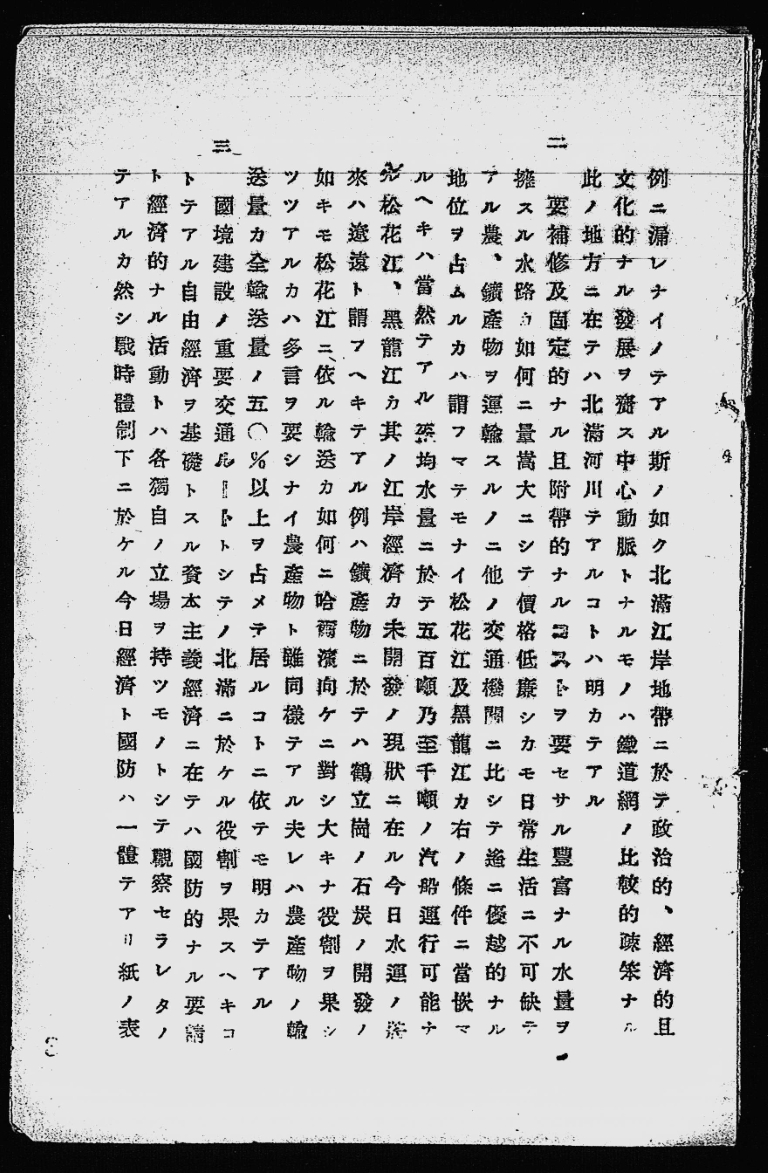 例ニ漏レナイノテアル斯ノ如ク北滿江岸地帶ニ於テ政治的、經濟的且
文化的ナル發展ヲ齎ス中心動脈トナルモノハ鐵道網ノ比較的疎笨ナル
此ノ地方ニ在テハ北滿河川テアルコトハ明カテアル
二 要補修及固定的ナル且附帶的ナルコストヲ要セサル豐富ナル水量ヲ
擁スル水路カ如何ニ量嵩大ニシテ價格低廉シカモ日常生活ニ不可缺テ
アル農、鑛產物ヲ運輸スルノニ他ノ交通機關ニ比シテ遙ニ優越的ナル
地位ヲ占ムルカハ謂フマテモナイ松花江及黑龍江カ右ノ條件ニ當嵌マ
ルヘキハ當然テアル 均水量ニ於テ五百噸乃至千噸ノ汽船運行可能ナ
松花江、黑龍江カ其ノ江岸經濟カ未開發ノ現狀ニ在ル今日水運ノ
來ハ遼遠ト謂フヘキテアル例ハ鑛產物ニ於テハ鶴立崗ノ石炭ノ開發ノ
如キモ松花江ニ依ル輸送カ如何ニ哈爾濱向ケニ對シ大キナ役割ヲ果シ
ツツアルカハ多言ヲ要シナイ農產物ト雖同樣テアル夫レハ農產物ノ輸
送量カ全輸送量ノ五〇%以上ヲ占メテ居ルコトニ依テモ明カテアル
三 國境建設ノ重要交通ルートトシテノ北滿ニ於ケル役割ヲ果スヘキコ
トテアル自由經濟ヲ基礎トスル資本主義經濟ニ在テハ國防的ナル要請
ト經濟的ナル活動トハ各獨自ノ立場ヲ持ツモノトシテ觀察セラレタノ
テアルカ然シ戰時體制下ニ於ケル今日經濟ト國防ハ一體テアリ紙ノ表